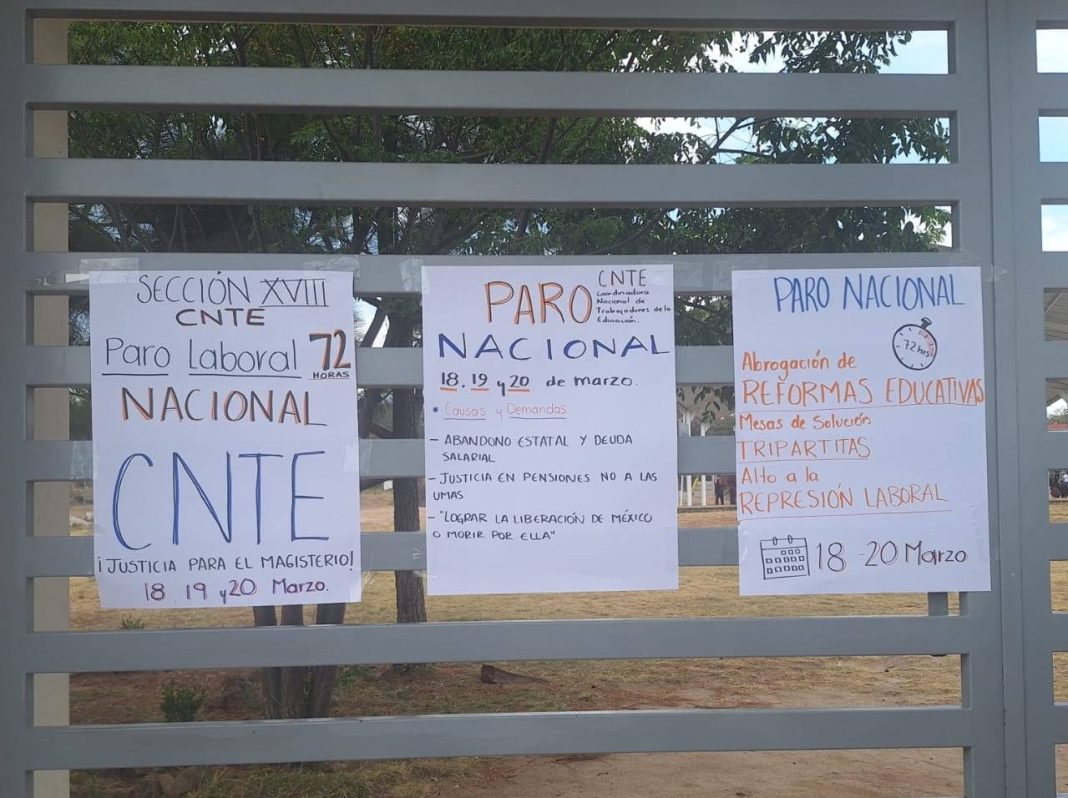 SECCIÓN XVIII
CNTE
Paro Laboral 72
HORAS
NACIONAL
CNTE
¡JUSTICIA PARA EL MAGISTERIO!
18 19 y 20 Marzo.
PARO
CNTE
Coordinadora
Nacional de
Trabajadores de la
Educación.
NACIONAL
18, 19 y 20 de marzo.
• Causas y Demandas
- ABANDONO ESTATAL Y DEUDA
SALARIAL
- JUSTICIA EN PENSIONES NO A LAS
UMAS
- "LOGRAR LA LIBERACIÓN DE MÉXICO
O MORIR POR ELLA"
PARO NACIONAL
72 hrs
Abrogación de
REFORMAS EDUCATIVAS
Mesas de Solución
TRIPARTITAS
Alto a la
REPRESIÓN LABORAL
18 - 20 Marzo